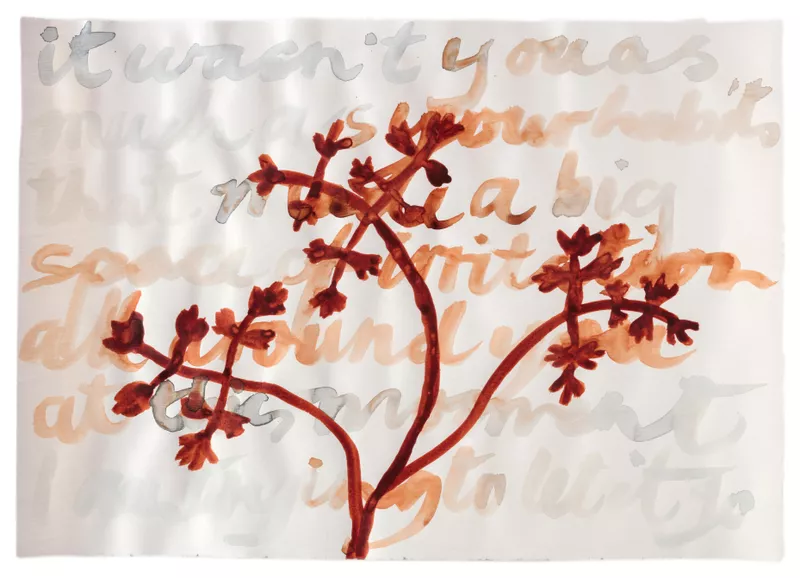 it wasn't you as
much as your habits
that made a big
space of irritation
all around you
at this moment
I am trying to let it go